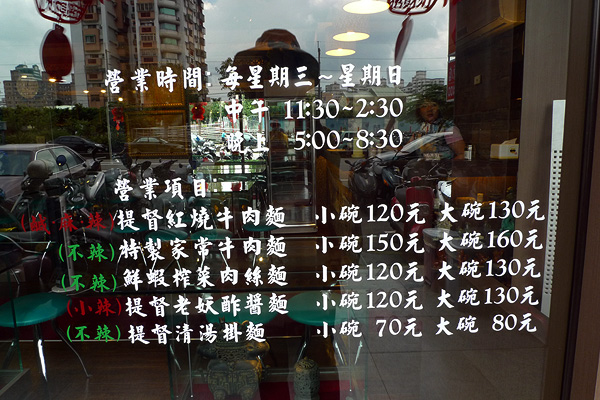 營業時間: 每星期三~星期日
中午 11:30~2:30
晚上 5:00~8:30
營業項目
麻辣)提督紅燒牛肉麵 小碗120元 大碗130元
(不辣)特製家常牛肉麵 小碗150元 大碗160元
(不辣)鮮蝦榨菜肉絲麵 小碗120元 大碗130元
(小辣)提督老妖酢醬麵 小碗120元 大碗130元
(不辣)提督清湯掛麵 小碗 70元 大碗 80元